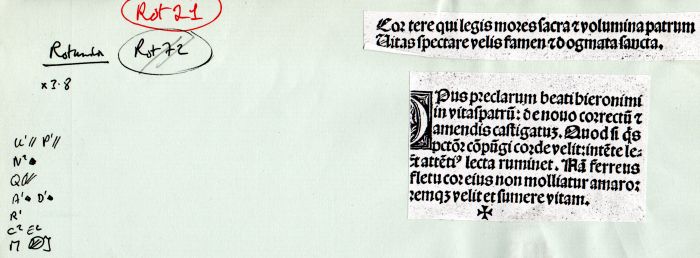 Rot 21
Rotunda
Rot 72
x 3.8
U'// P'//
N²
Q
A' D'
R'
C² E²
M
Cor tere qui legis mores sacra ⁊ volumina patrum
Uitas spectare velis famen ⁊ dogmata sancta.
Opus preclarum beati hieronimi
in vitaspatrū: de nouo correctū ⁊
amendis castigatuꝫ. Quod si q̄s
pctōꝛ cōpūgi corde velit: intēte le⸗
ct attēti⁹ lecta ruminet. Nā ferreus
fletu cor eius non molliatur amaro:
remqꝫ velit et sumere vitam.
✠